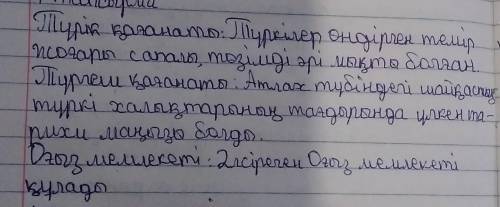 Түрік қағанаты: Түркілер өндірген темір
жоғары сапалы, төзімді әрі мықты болған.
Түргеш қағанаты: Атлах түбіндегі шайқастың
түркі халықтарының тағдырында үлкен та-
рихи маңызы болды.
Оғыз мемлекеті: Әлсіреген Оғыз мемлекеті
құлады